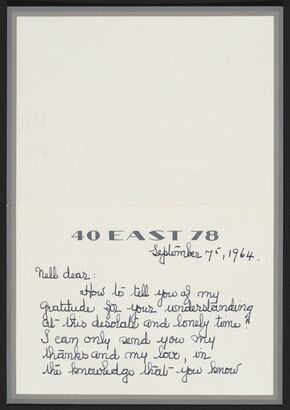 40 EAST 78
September 7th, 1964.
Nell dear:
How to tell you of my
gratitude for your understanding
at this desolate and lonely time?
I can only send you my
thanks and my love, in
the knowledge that you know